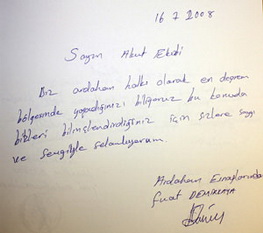 16 7 2008
Sayın Akut Ekibi
Biz ardahan halkı olarak en deprem
bölgesinde yaşadığımızı biliyoruz bu konuda
bizleri bilinçlendirdiğiniz için sizlere saygı
ve sevgiyle selamlıyorum.
Ardahan Esnaflarından
Fuat DEMİRKAYA